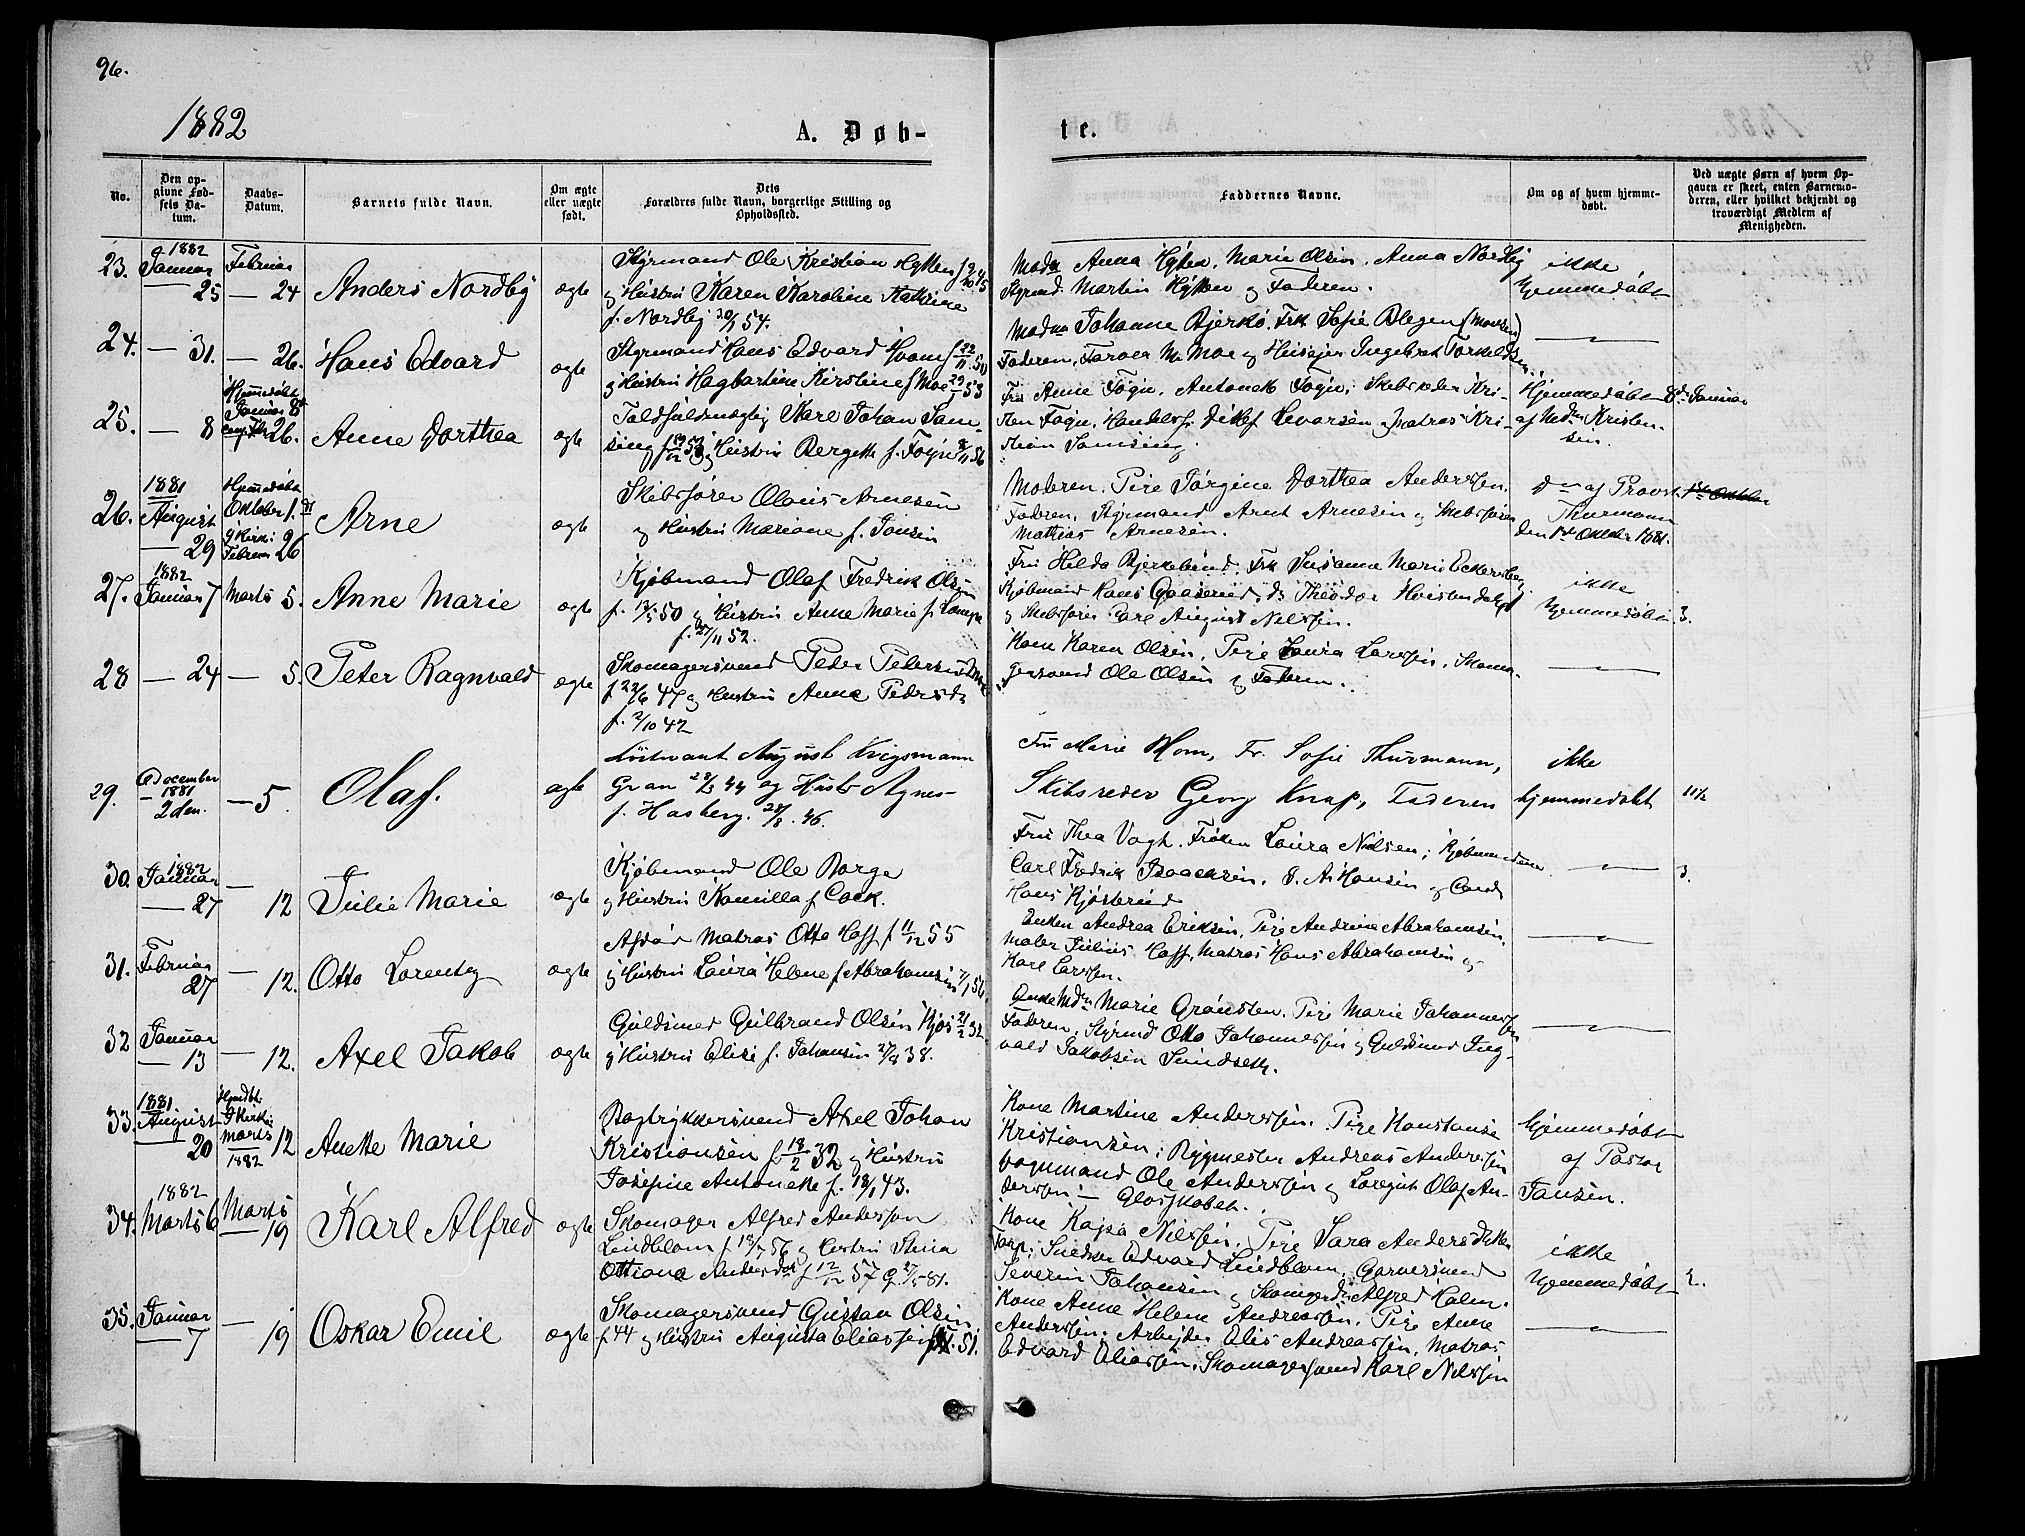 96.
1882
A. Døb-
te.
No.
Den op-
givne Fød-
sels Da-
tum.
Daabs-
Datum.
Barnets fulde Navn.
Om ægte
eller uægte
født.
Dets
Forældres fulde Navn, borgerlige Stilling og
Opholdssted.
Faddernes Navne.
Om og af hvem hjemme-
døbt.
Ved uægte Børn af hvem Op-
gaven er skeet, enten Barnemo-
deren, eller hvilket bekjendt og
troværdigt Medlem af
Menigheden.
23. 1882 Januar 25
Februar 24
Anders Nordby
ægte
Styrmand Ole Kristian Hytten
og Hustru Karen Karoline Kathrine
f. Nordby 20/1 54.
Mad. Anna Hytten, Marie Olsen, Anna Nordby
Styrmd. Martin Hytten og Faderen.
ikke
hjemmedøbt
24. — 31.
— 26.
Hans Edvard
ægte
Styrmand Hans Edvard Hvam f 22/11 50
og Hustru Hagbartine Kirstine f Moe 29 53
Madm Johanne Bjerkø, Frk Sofie Blegen
Faderen, Farver M. Moe og Huseier Ingebret Torkelds
25. — 8
Hjemmedøbt
Januar 8de
26.
Anne Dorthea
ægte
Toldfuldmægtig Karl Johan Sam-
sing og Hustru Bergette f. Føyn 8/11 56
Fru Anne Føyn, Antonette Føyn, Skibsreder Kri-
sten Føyn, Handelsf. Ditlef Sevarsen og Matros Kri-
stian Samsing.
Hjemmedøbt 8de Januar
af Madm Kristen-
sen.
26. 1881 August 29
Hjemmedøbt
Oktober 1.
i Kirk:
Februar 26
Arne
ægte
Skibsfører Olaus Arnesen
og Hustru Mariane f. Jansen
Moderen, Pige Jørgine Dorthea Anderssen.
Faderen, Styrmand Arnt Arnesen og Skibsfører
Mathias Arnesen.
do af Provst
Thurmann
den 1ste Oktober 1881.
27. 1882 Januar 7
Marts 5.
Anne Marie
ægte
Kjøbmand Olaf Fredrik Olsen
f. 18/5 50 og Hustru Anne Marie f. Lampe
f. 27/11 52.
Fru Hilda Bjerkebund, Frk Susanne Marie Eckersberg
Kjøbmand Hans Gaaserud, do Theodor Hvistendahl
og Skibsfører Carl August Nilssen.
ikke
hjemmedøbt
3.
28 — 24
— 5.
Peter Ragnvald
ægte
Skomagersvend Peder Pedersen
f 22/6 47 og Hustru Anne Pedersd.
f. 2/10 42
Kone Karen Olsen, Pige Laura Larssen, Skoma-
gersvend Ole Olsen og Faderen.
29. December
1881
2den.
— 5.
Olaf.
ægte
Løitnant August Krigsmann
Gran 28/3 44 og Hustr Agnes
f. Hasberg. 28/8 . 46.
Fru Marie Hom, Fr. Sofie Thurmann,
Skibsreder Georg Knap, Faderen
ikke
hjemmedøbt
11½
30 1882 Januar 27
— 12
Julie Marie
ægte
Kjøbmand Ole Borge
og Hustru Kamilla f Cock.
Fru Thea Vogh. Frøken Laura Nilsen; Kjøbmændene
Carl Fredrik Isaacksen, J. A. Hansen og Cand.
Hans Kjøsterud
3.
31. Februar 27
— 12.
Otto Lorentz
ægte
Afdød Matros Otto Hoff f 11/12 55
og Hustru Laura Helene f. Abrahamsen 7/1 56
Enken Andrea Eriksen, Pige Andrine Abrahamsen,
Maler Julius Hoff, Matros Hans Abrahamsen og
Karl Larssen.
32 Januar 13
— 12.
Axel Jakob
ægte
Guldsmed Gulbrand Olsen Kjøs 21/2 32
og Hustru Elise f. Johansen 27/4 38.
Enke Mdm Marie Grønsten. Pige Marie Johannessen
Faderen, Styrmd Otto Johannessen og Guldsmed Ing-
vald Jakobsen Sundseth.
33. 1881 August 20
Hjmdbt.
i Kirk:
Marts 12
1882
Anette Marie
ægte
Bogtrykkersvend Axel Johan
Kristiansen f 18/2 32 og Hustru
Josefine Antonette f. 18/1 43.
Kone Martine Anderssen. Pige Konstanse
Kristiansen; Rygmester Andreas Anderssen
Vognmand Ole Anderssen og Loregut Olaf An-
derssen — Glosskobet.
hjemmedøbt
af Pastor
Jansen.
34. 1882 Marts 6
Marts 19
Karl Alfred
ægte
Skomager Alfred Anderssen
Lindblom f 18/7 56 og Hustru Stina
Ottiana Andersdtr f 12/12 57 g. 27/5 81.
Kone Kajsa Nilssen. Pige Sara Andersdatter
Torp; Snedker Edvard Lindblom, Garversvend
Severin Johansen og Skomagersd. Alfred Holm.
ikke
hjemmedøbt
2.
35. Januar 7
— 19
Oskar Emil
ægte
Skomagersvend Gustav Olsen
f. 44 og Hustru Augusta Eliassen 51.
Kone Anne Helene Andreassen. Pige Anne
Anderssen. Arbejder Elis Andreassen, Matros
Edvard Eliassen, Skomagersvend Karl Nilssen